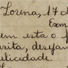 Lorena, 17 d
Exm
em esta o f
nita, desejan
elicidade